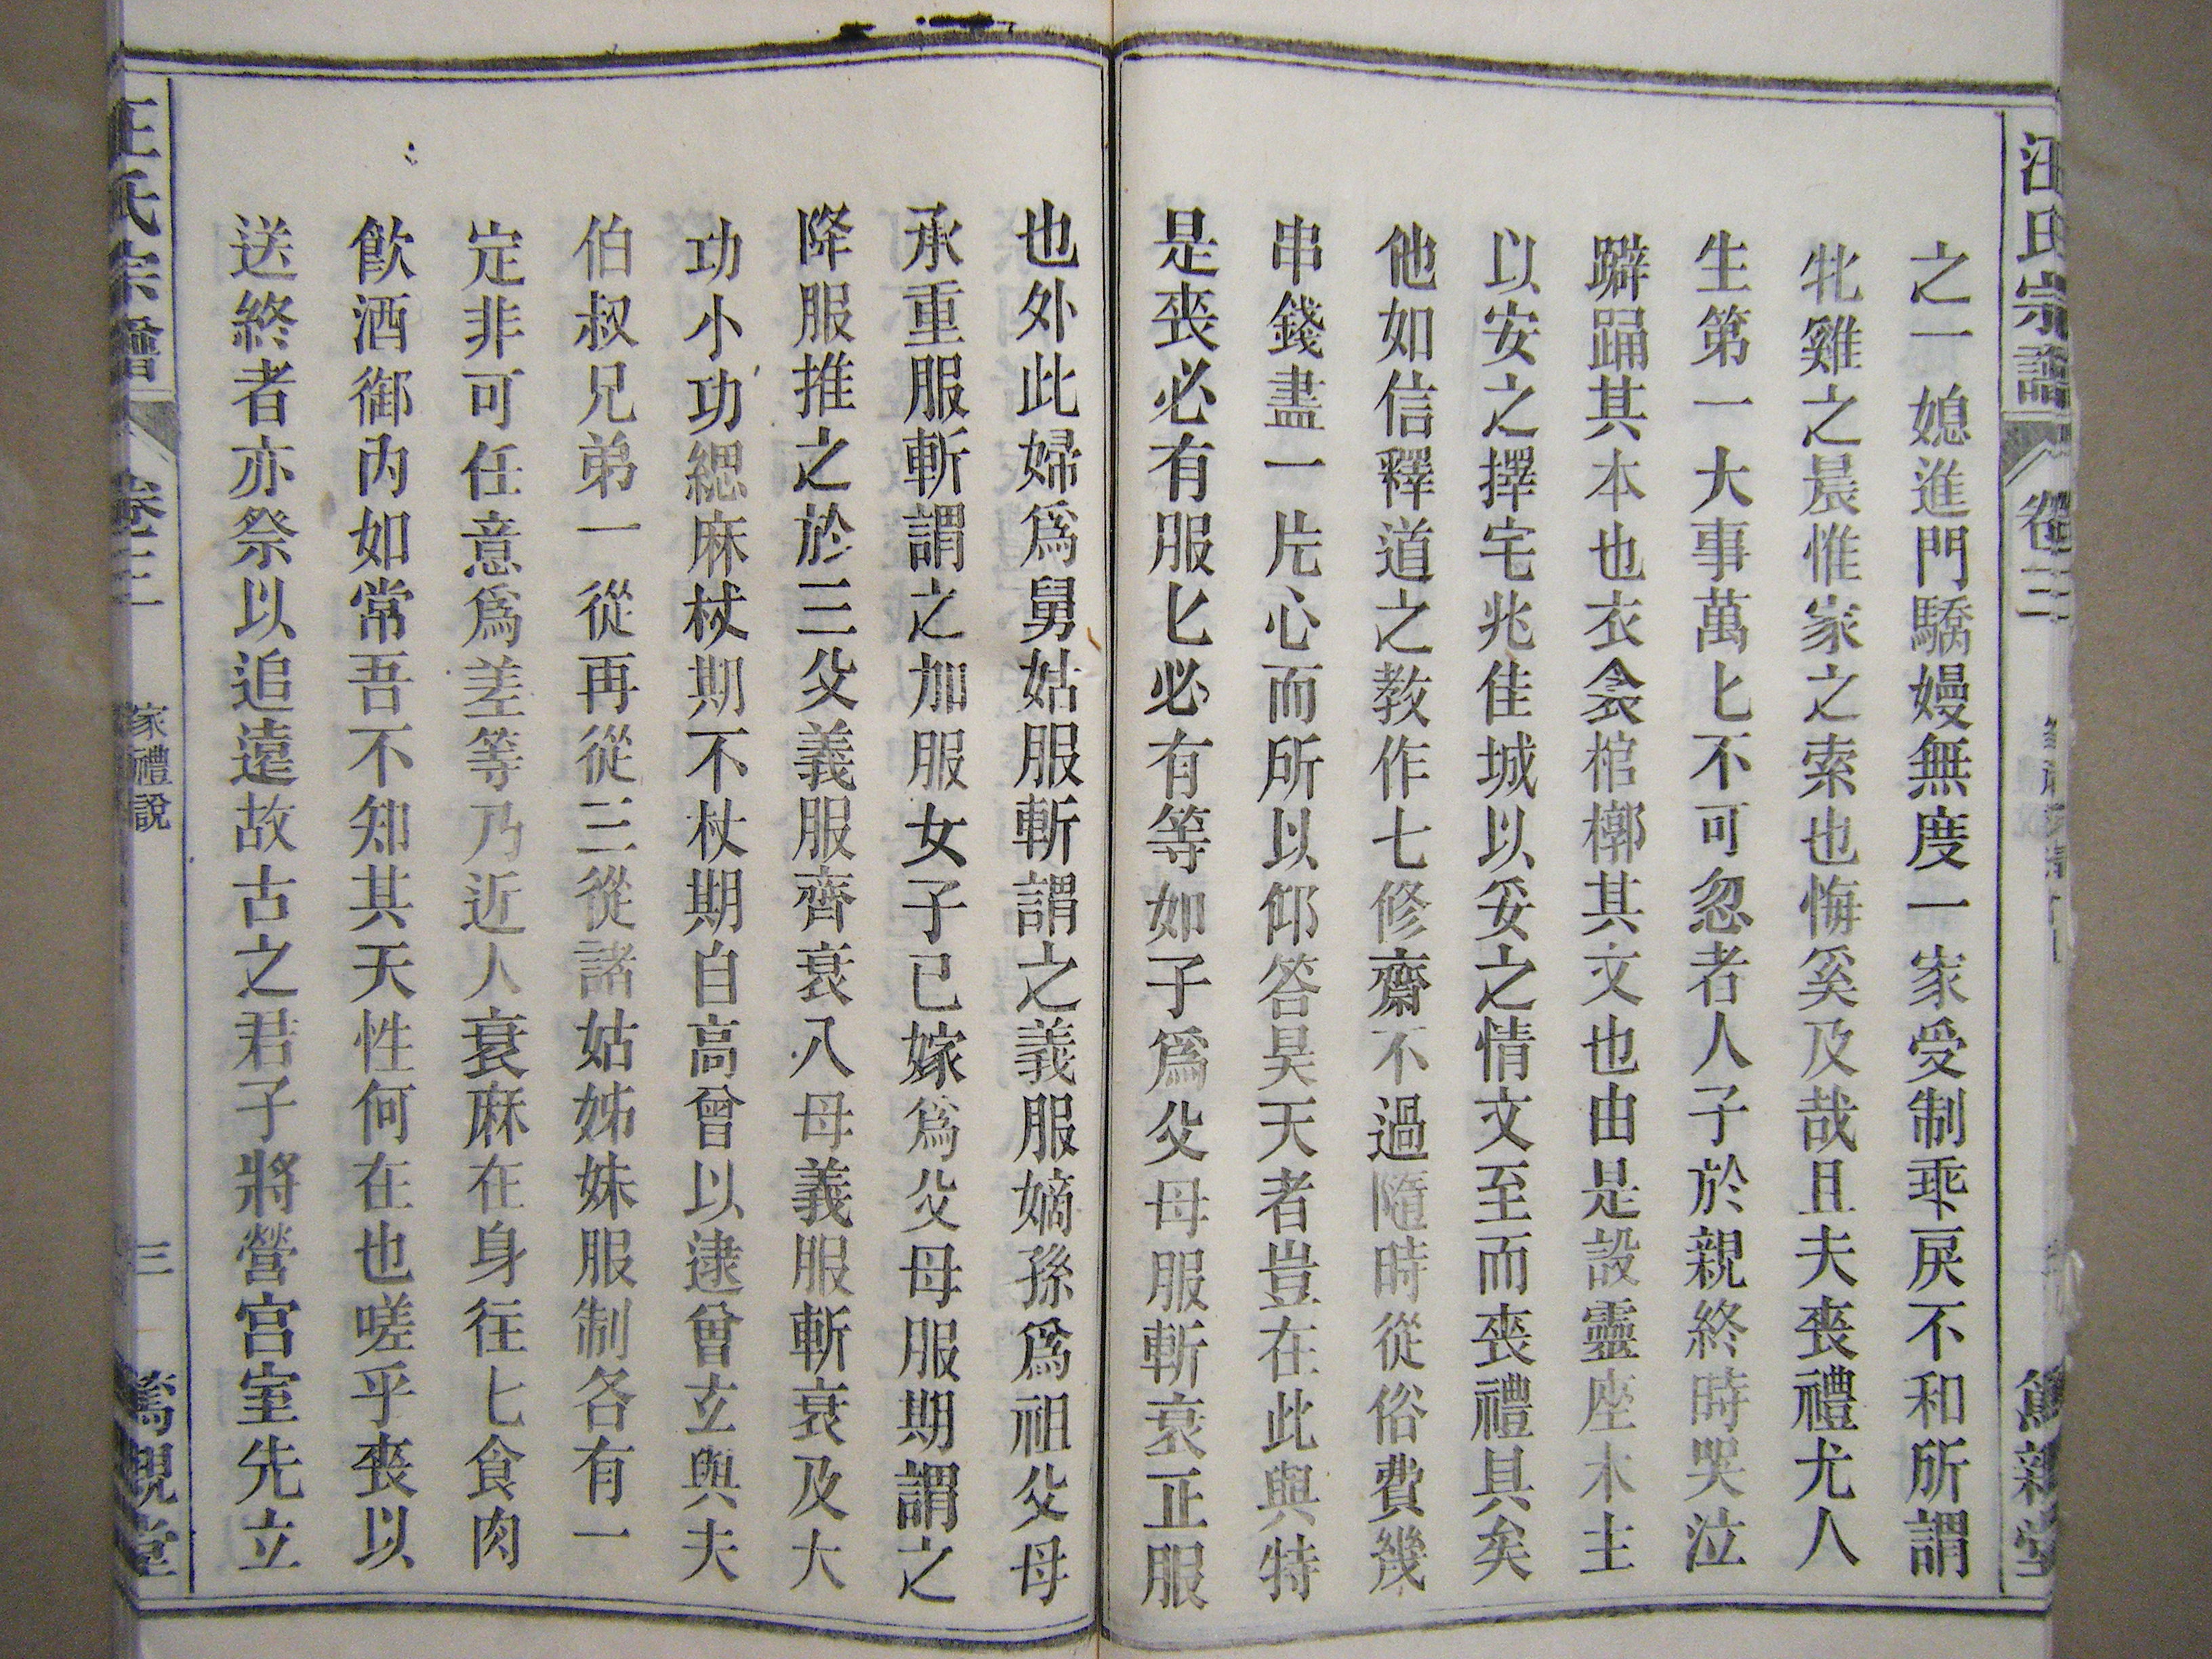 汪氏宗譜 卷三 篤親堂
之一媳進門驕嫚無度一家受制乖戾不和所謂
牝雞之晨惟家之索也悔奚及哉且夫喪禮尤人
生第一大事萬匕不可忽者人子於親終時哭泣
躃踊其本也衣衾棺槨其文也由是設靈座木主
以安之擇宅兆佳城以妥之情文至而喪禮具矣
他如信釋道之教作七修齋不過隨時從俗費幾
串錢盡一片心而所以仰答昊天者豈在此與特
是喪必有服匕必有等如子爲父母服斬衰正服
也外此婦爲舅姑服斬謂之義服嫡孫爲祖父母
承重服斬謂之加服女子已嫁爲父母服期謂之
降服推之於三父義服齊衰八母義服斬衰及大
功小功緦麻杖期不杖期自高曾以逮曾玄與夫
伯叔兄弟一從再從三從諸姑姊妹服制各有一
定非可任意爲差等乃近人衰麻在身往匕食肉
飲酒御內如常吾不知其天性何在也嗟乎喪以
送終者亦祭以追遠故古之君子將營宮室先立
汪氏宗譜 卷三 家禮說 三 篤親堂